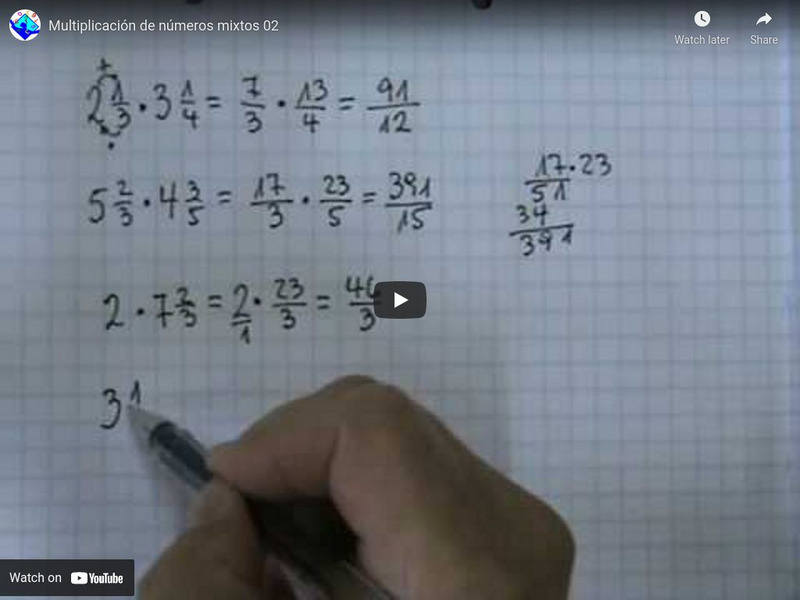 Multiplicación de números mixtos 02
Watch later
Share
+
2 1/3 · 3 1/4 = 7/3 · 13/4 = 91/12
·
5 2/3 · 4 3/5 = 17/3 · 23/5 = 391/15
17·23
51
34
391
2 · 7 2/3 = 2/1 · 23/3 = 46/3
3 1
Watch on YouTube